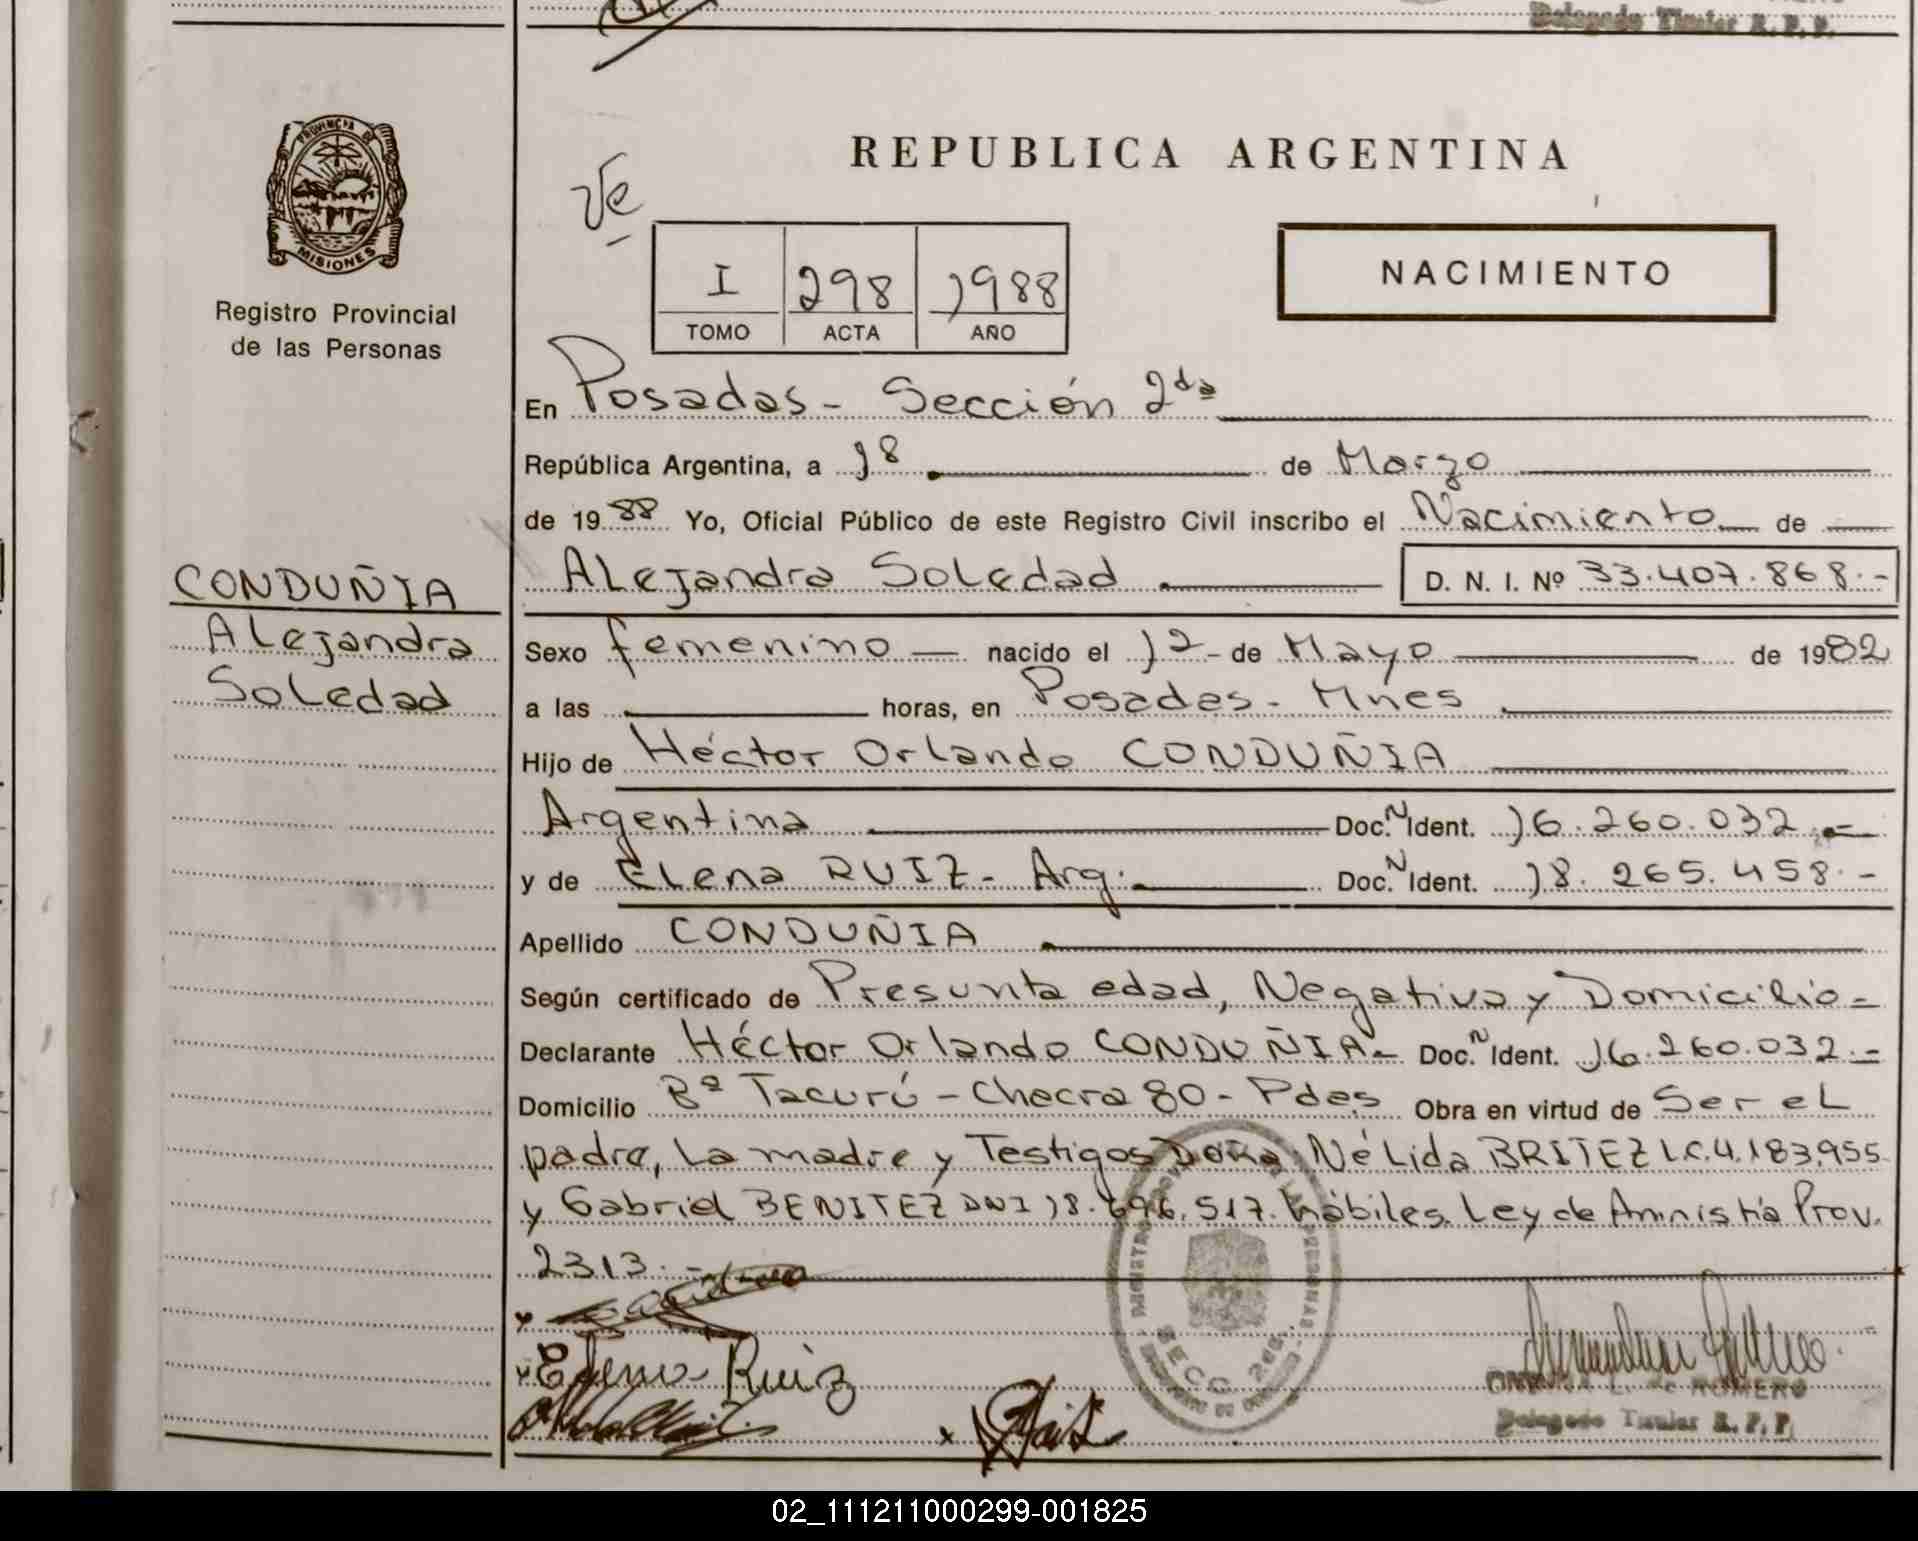 Delegado Titular R. P. P.
PROVINCIA DE
MISIONES
Registro Provincial
de las Personas
REPUBLICA ARGENTINA
Ve
NACIMIENTO
I 298 1988
TOMO ACTA AÑO
En Posadas - Sección 2da
República Argentina, a 18 de Marzo
de 1988 Yo, Oficial Público de este Registro Civil inscribo el Nacimiento de
CONDUÑIA
Alejandra
Soledad
Alejandra Soledad D. N. I. Nº 33.407.868.-
Sexo femenino nacido el 12 - de Mayo de 1982
a las horas, en Posadas - Mnes
Hijo de Héctor Orlando CONDUÑIA
Argentina Doc. N Ident. 16.260.032.-
y de Elena RUIZ - Arg. Doc. N Ident. 18.265.458.-
Apellido CONDUÑIA
Según certificado de Presunta edad, Negativa y Domicilio -
Declarante Héctor Orlando CONDUÑIA - Doc. N Ident. 16.260.032.-
Domicilio Bº Tacurú - Chacra 80 - Pdas Obra en virtud de Ser el
padre, La madre y Testigos Doña Nélida BRITEZ L.C. 4.183.955
y Gabriel BENITEZ DNI 18.696.517. hábiles. Ley de Aministía Prov.
2313.-
Elena Ruiz
SECC. 2da.
DE ROMERO
Delegado Titular R. P. P.
02_111211000299-001825